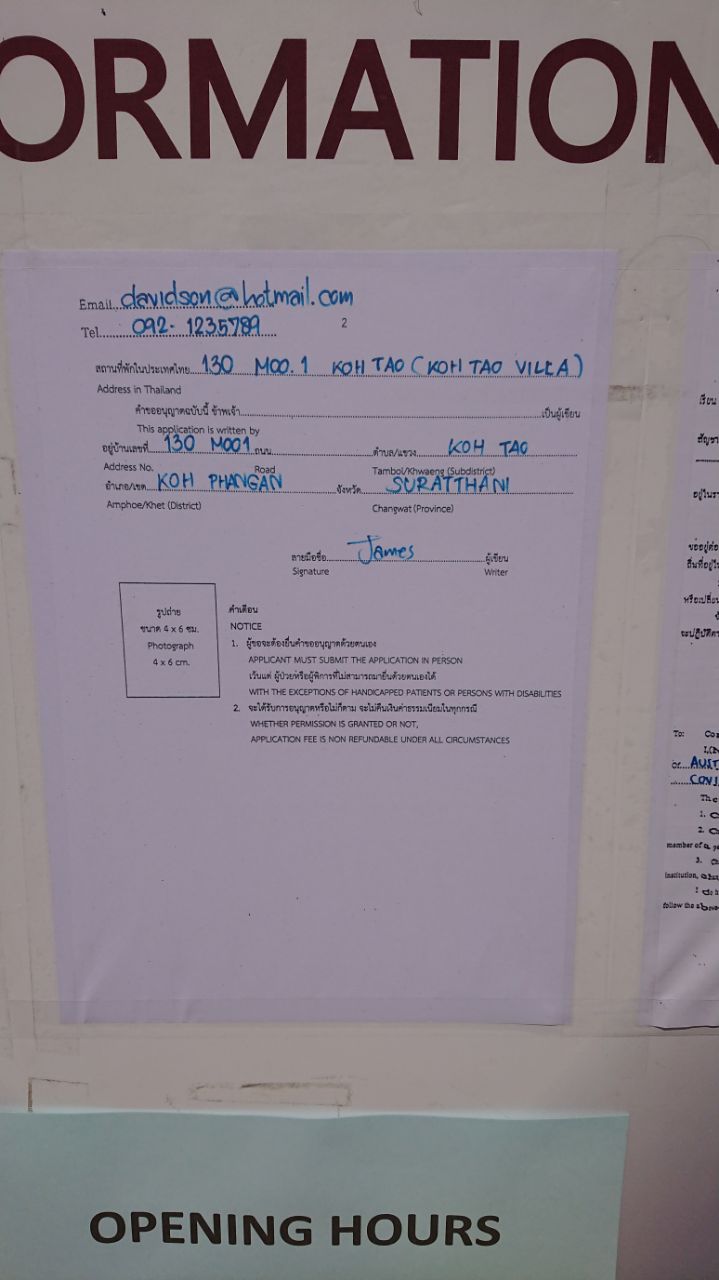 ORMATION
Email davidson@hotmail.com
Tel. 092-1235789
2
สถานที่พักในประเทศไทย 130 MOO.1 KOH TAO (KOH TAO VILLA)
Address in Thailand
คำขออนุญาตฉบับนี้ ข้าพเจ้า เป็นผู้เขียน
This application is written by
อยู่บ้านเลขที่ 130 MOO1 ถนน ตำบล/แขวง KOH TAO
Address No. Road Tambol/Khwaeng (Subdistrict)
อำเภอ/เขต KOH PHANGAN จังหวัด SURATTHANI
Amphoe/Khet (District) Changwat (Province)
ลายมือชื่อ James ผู้เขียน
Signature Writer
รูปถ่าย
ขนาด 4 x 6 ซม.
Photograph
4 x 6 cm.
คำเตือน
NOTICE
1. ผู้ขอจะต้องยื่นคำขออนุญาตด้วยตนเอง
APPLICANT MUST SUBMIT THE APPLICATION IN PERSON
เว้นแต่ ผู้ป่วยหรือผู้พิการที่ไม่สามารถมายื่นด้วยตนเองได้
WITH THE EXCEPTIONS OF HANDICAPPED PATIENTS OR PERSONS WITH DISABILITIES
2. จะได้รับการอนุญาตหรือไม่ก็ตาม จะไม่คืนเงินค่าธรรมเนียมในทุกกรณี
WHETHER PERMISSION IS GRANTED OR NOT,
APPLICATION FEE IS NON REFUNDABLE UNDER ALL CIRCUMSTANCES
เรียน
สัญชา
อยู่ในรา
ขออยู่ต่อ
หรือเปลี่ย
จะปฏิบัติต
To: Co
of AUST
The
1.
2.
member of a
3.
institution,
follow the
OPENING HOURS